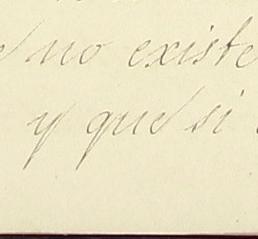 no existe
y que si